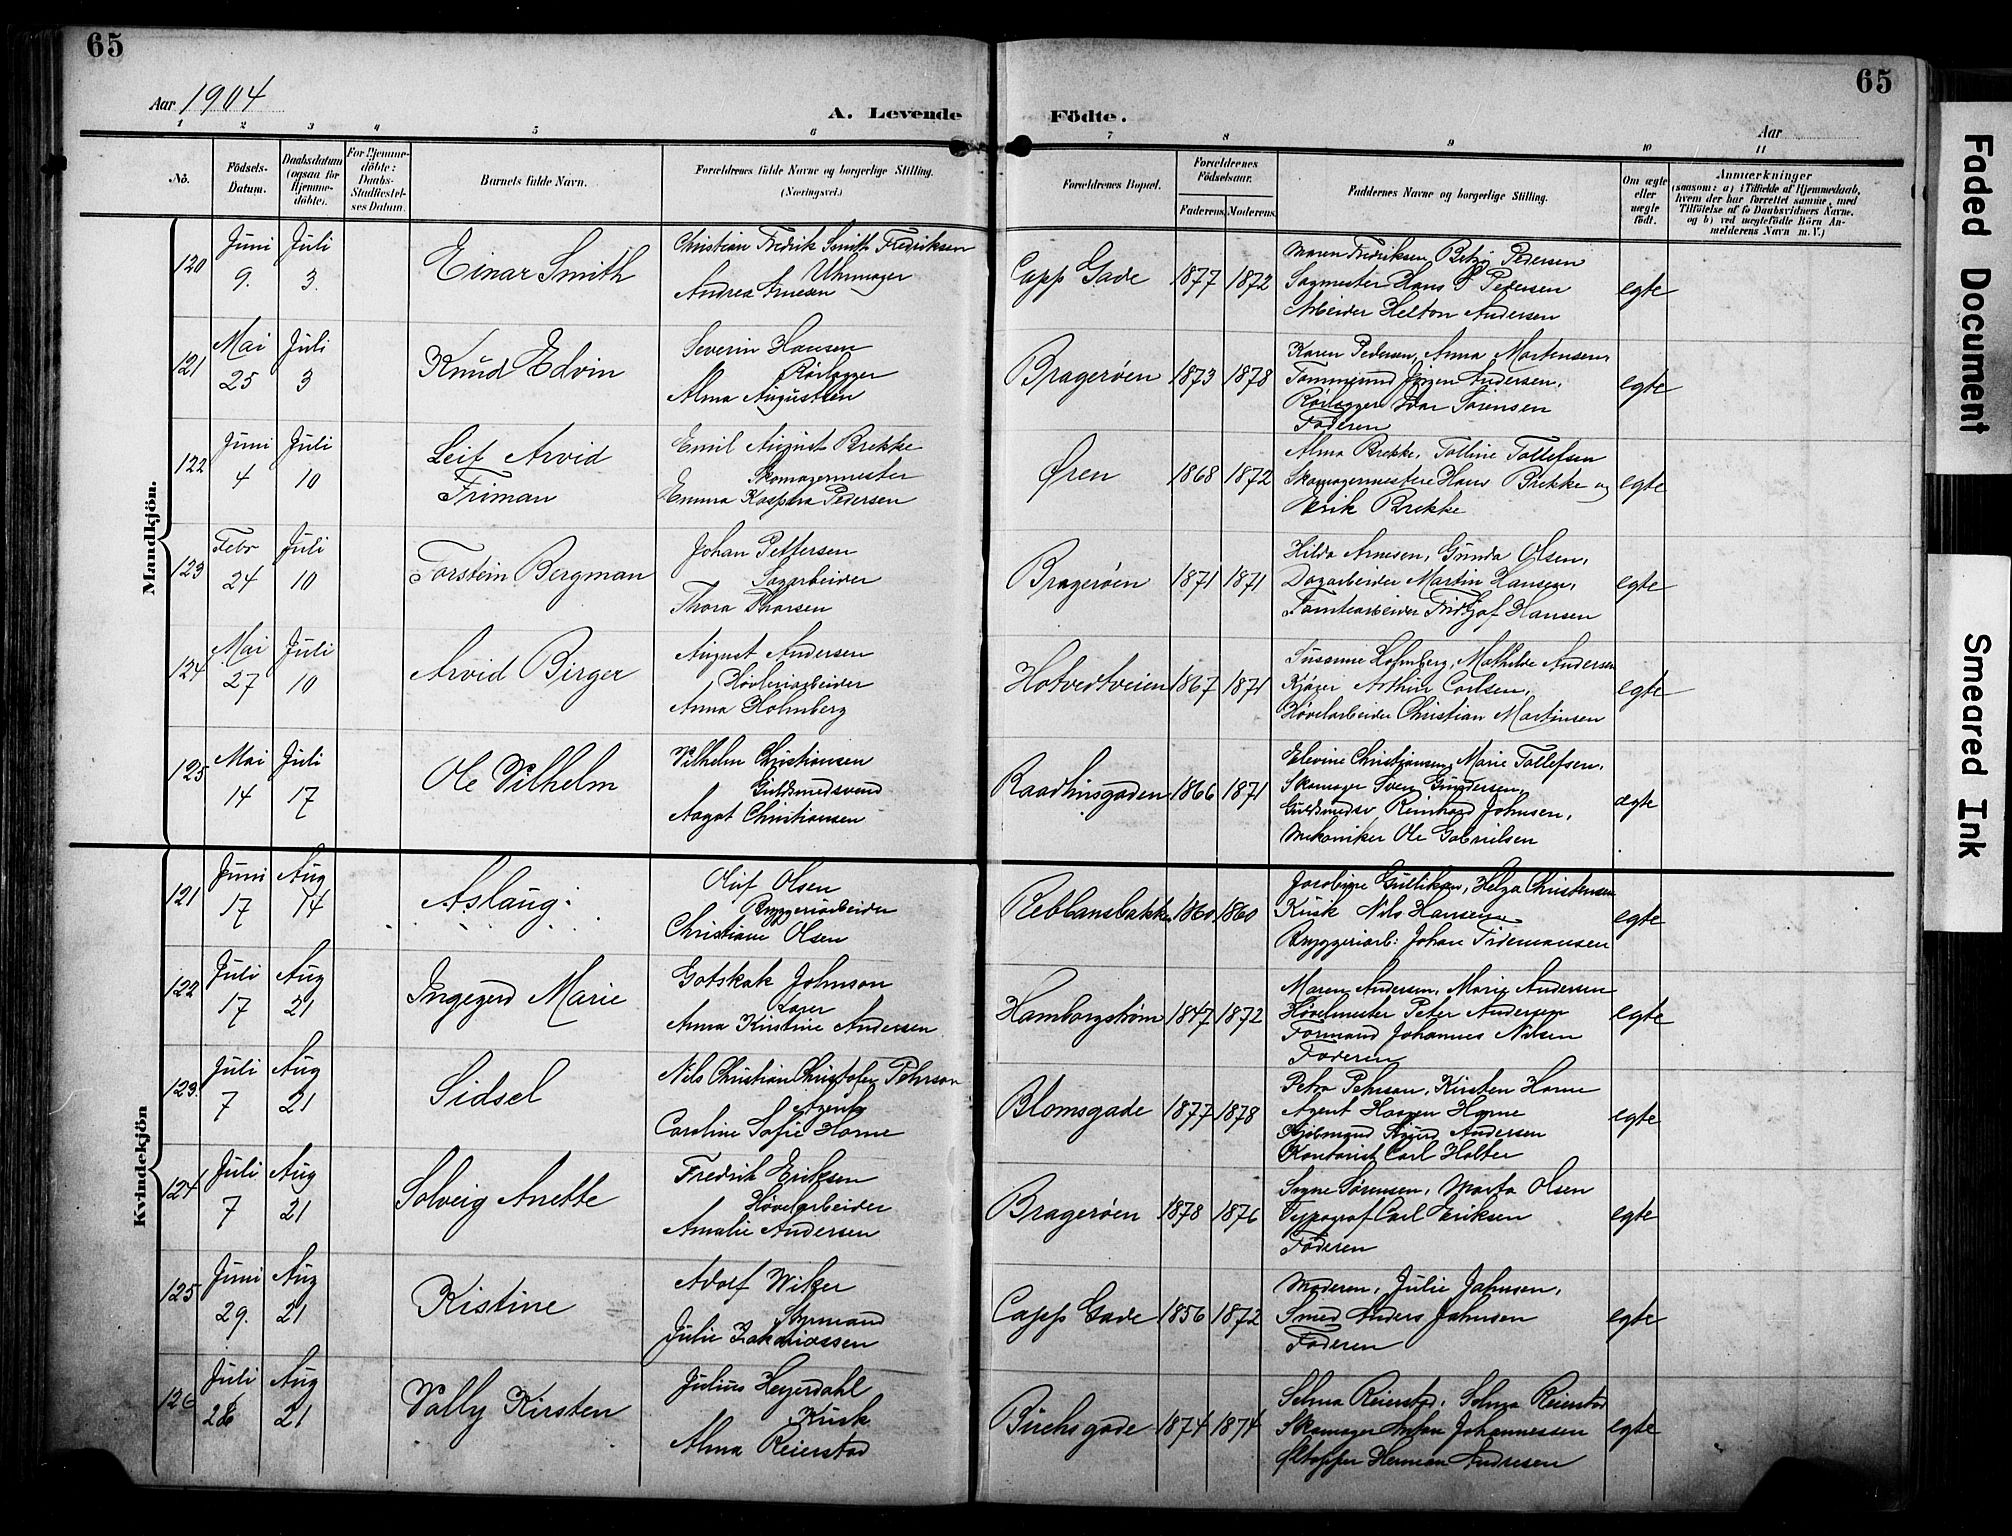 65
65
Aar 1904
A. Levende
Födte.
Aar
1 2 3 4 5 6 7 8 9 10 11
No.
Födsels-
Datum.
Daabsdatum
(ogsaa for
Hjemme-
döbte).
For Hjemme-
döbte:
Daabs-
Stadfæstel-
ses Datum.
Barnets fulde Navn.
Forældrenes fulde Navne og borgerlige Stilling.
(Næringsvei.)
Forældrenes Bopæl.
Forældrenes
Födselsaar.
Faderens.
Moderens.
Faddernes Navne og borgerlige Stilling.
Om ægte
eller
uægte
födt.
Anmærkninger
(saasom: a) i Tilfælde af Hjemmedaab,
hvem der har forrettet samme, med
Tilföielse af to Daabsvidners Navne,
og b) ved uægtefödte Börn An-
melderens Navn m. V.)
Mandkjön.
120 Juni 9. Juli 3. Einar Smith
Christian Fredrik Smith Fredriksen
Uhrmager
Andrea Arnesen
Capp Gade 1877 1872
Maren Fredriksen, Betzy Pedersen
Sagmester Hans P Pedersen
Arbeider Helton Andersen
egte
121 Mai 25 Juli 3 Knud Edvin
Severin Hansen
Rörlægger
Alma Augustsen
Bragerøen 1873 1878
Karen Pedersen, Anna Mortensen,
Tømmermd Jörgen Andersen,
Rörlægger Ivar Sørensen
Faderen
egte
122 Juni 4 Juli 10 Leif Arvid
Friman
Emil August Brekke
Skomagermester
Emma Kaspara Pedersen
Øren 1868 1872
Alma Brekke, Talline Tollefsen
Skomagermestere Hans Brekke og
Erik Brekke
egte
123 Febr 24 Juli 10 Torstein Bergman
Johan Pettersen
Sagarbeider
Thora Thorsen
Bragerøen 1871 1871
Hilda Arnesen, Gunda Olsen,
Dagarbeider Martin Hansen,
Tomtearbeider Fridtjof Hansen
egte
124 Mai 27 Juli 10 Arvid Birger
August Andersen
Høvleriarbeider
Anna Holmberg
Hotvedtveien 1867 1871
Susanne Holmberg, Mathilde Andersen
Kjører Arthur Carlsen,
Høvelarbeider Christian Martinsen
egte
125 Mai 14 Juli 17 Ole Vilhelm
Vilhelm Christiansen
Guldsmedsvend
Aagot Christiansen
Raadhusgaden 1866 1871
Elevine Christiansen, Marie Tollefsen,
Skomager Sven Gundersen,
Guldsmedsv Reinhard Johnsen,
Mekaniker Ole Gabrielsen
ægte
Kvindekjön
121 Juni 17 Aug 14 Aslaug.
Oluf Olsen
Bryggeriarbeider
Christiane Olsen
Reblansbakken 1860 1860
Jacobine Gulliksen, Helga Christensen
Kusk Nils Hansen
Bryggeriarb: Johan Tidemansen
egte
122 Juli 17 Aug 21 Ingegerd Marie
Gotskalk Johnson
Anna Kristine Andersen
Hamborgstrøm 1847 1872
Maren Andersen, Marie Andersen
Høvelmester Peter Andersen
Formand Johannes Nilsen
Faderen
egte
123. Juli 7 Aug 21 Sidsel
Nils Christian Christofer Pehrson
Agent
Caroline Sofie Horne
Blomsgade 1877 1878
Petra Pehrson, Kirsten Horne
Agent Haagen Horne
Kjøbmand Sigurd Andersen
Kontorist Carl Holter
egte
124 Juli 7 Aug 21 Solveig Anette
Fredrik Eriksen
Høvelarbeider
Amalie Andersen
Bragerøen 1878 1876
Signe Sørensen, Marta Olsen
Typograf Carl Eriksen
Faderen
egte
125 Juni 29. Aug 21 Kistine
Adolf Wiker
Styrmand
Julie Zakariassen
Capp Gade 1856 1872
Moderen, Julie Jahnsen,
Smed Anders Jahnsen
Faderen
egte
126 Juli 28 Aug 21 Vally Kirsten
Julius Heyerdahl
Kusk
Alma Reierstad
Buchsgade 1874 1874
Selma Reierstad, Selma Reierstad
Skomager Anton Johannessen
Herman Andresen
egte
Faded Document
Smeared Ink